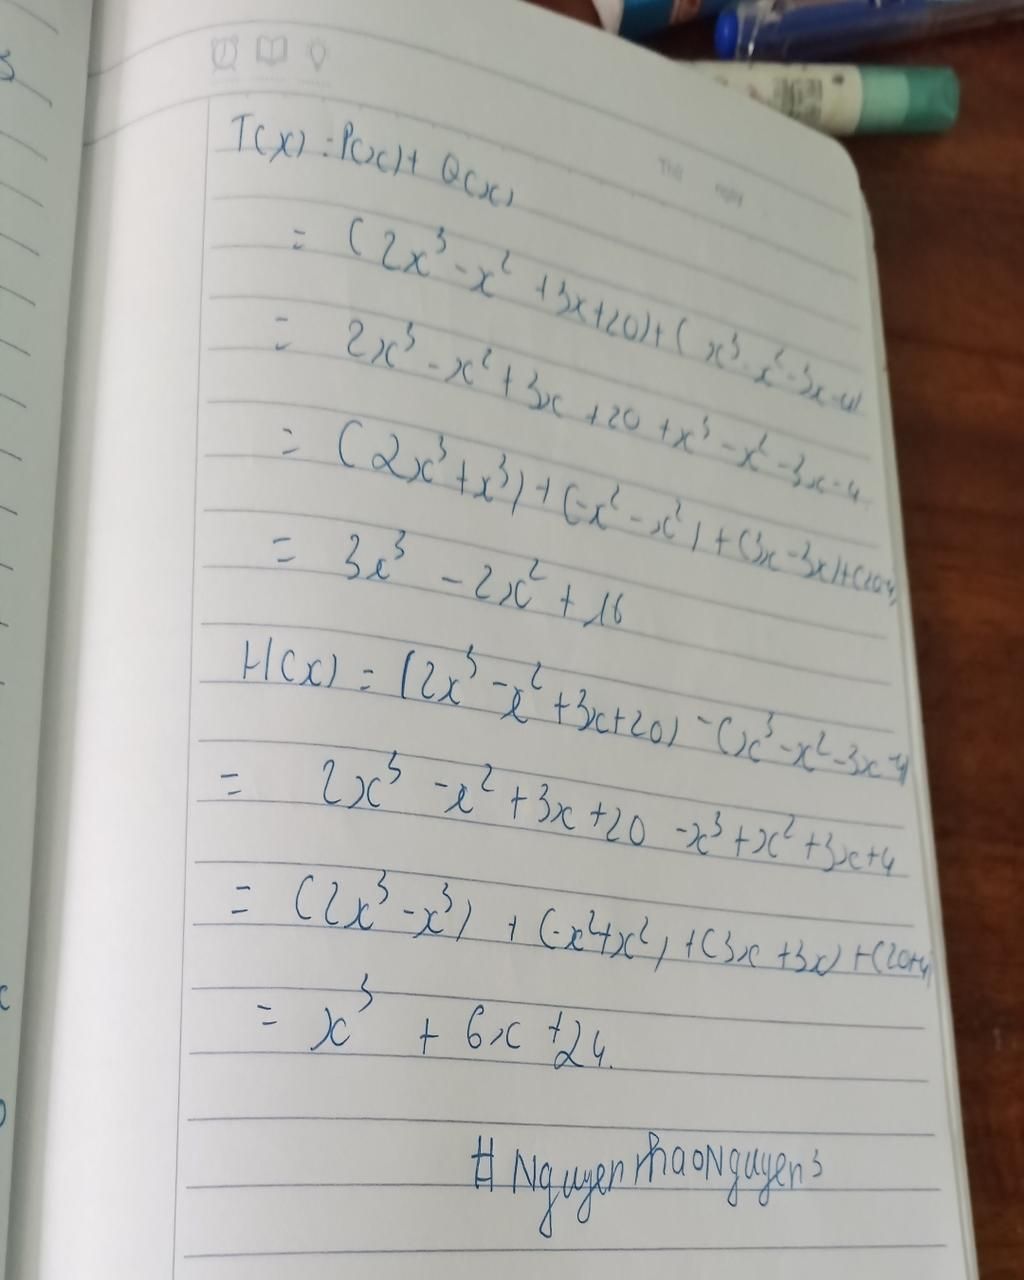 T(x) = P(x) + Q(x)
= (2x³ - x² + 3x + 20) + (x³ - x² - 3x - 4)
= 2x³ - x² + 3x + 20 + x³ - x² - 3x - 4
= (2x³ + x³) + (-x² - x²) + (3x - 3x) + (20 - 4)
= 3x³ - 2x² + 16
H(x) = (2x³ - x² + 3x + 20) - (x³ - x² - 3x - 4)
= 2x³ - x² + 3x + 20 - x³ + x² + 3x + 4
= (2x³ - x³) + (-x² + x²) + (3x + 3x) + (20 + 4)
= x³ + 6x + 24.
# NguyenThaoNguyen3